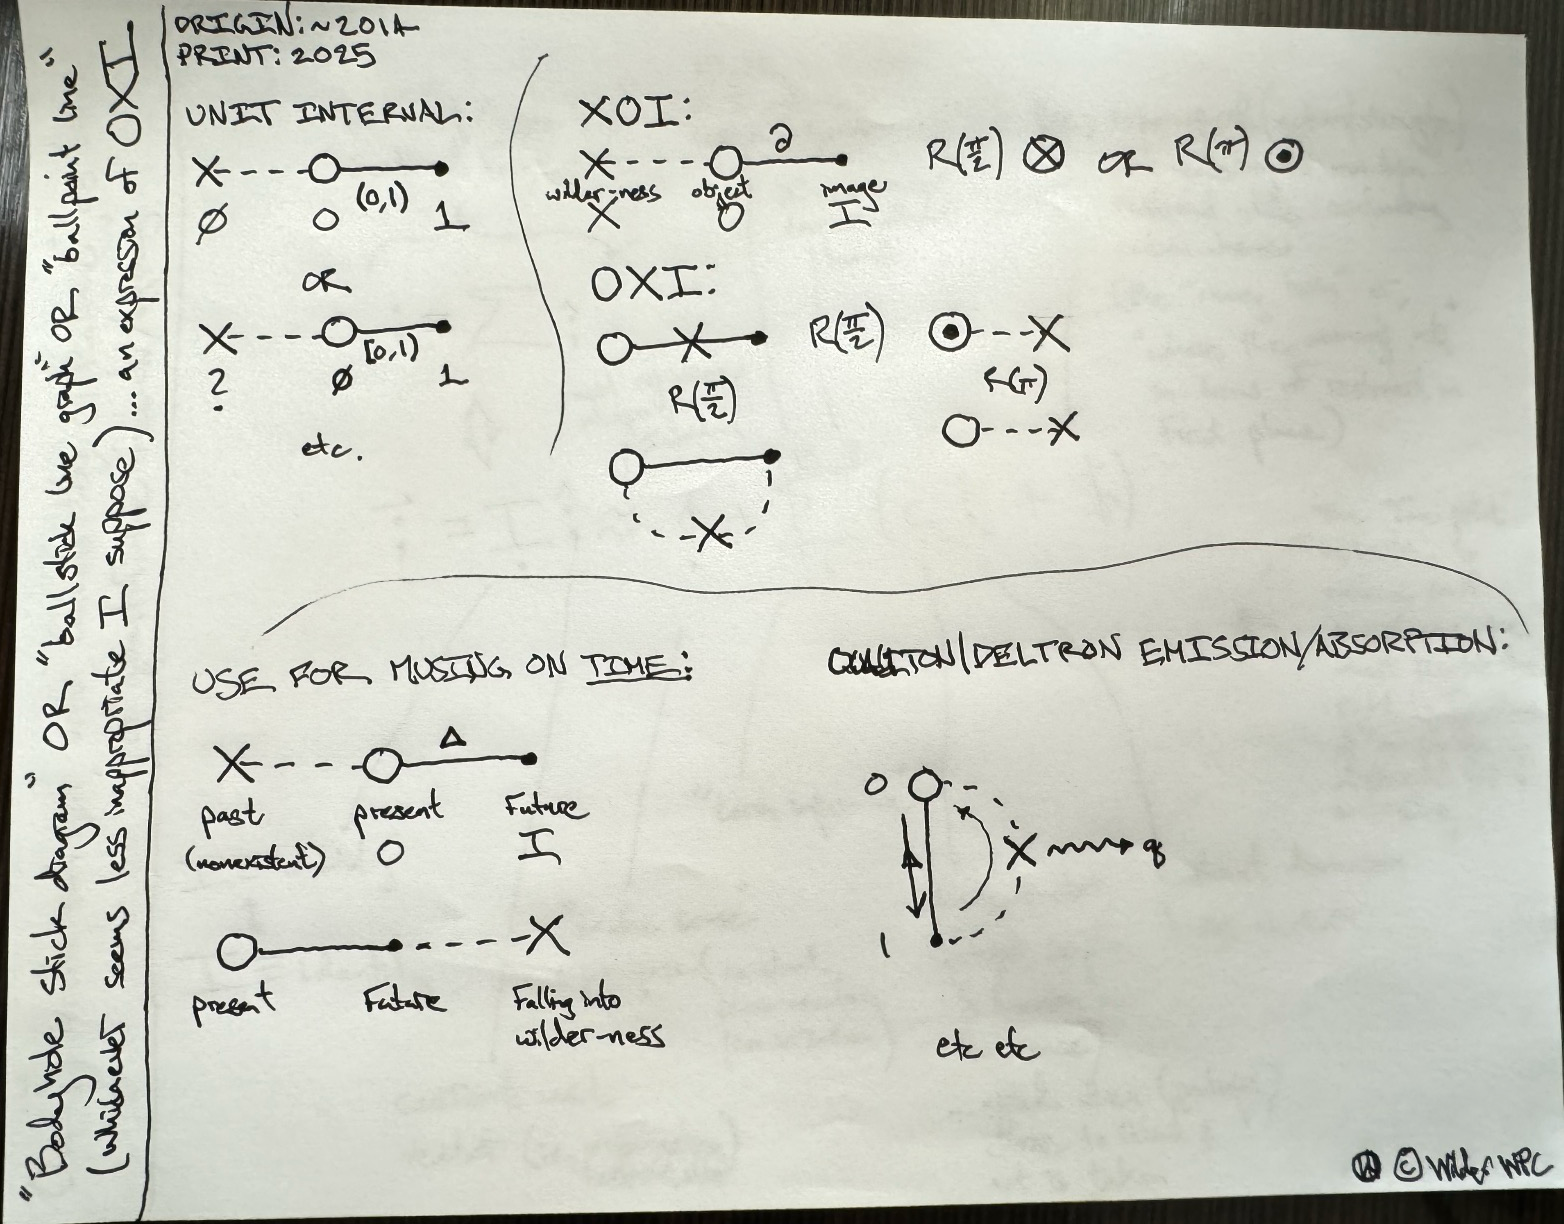 "Bodyhole stick diagram" OR "ballstick line graph" OR "ballpoint line"
(whichever seems less inappropriate I suppose)... an expression of OXI
ORIGIN: ~2014
PRINT: 2025
UNIT INTERVAL:
X O (0,1)
∅ 0 1
OR
X O [0,1)
? ∅ 1
etc.
XOI:
X O ∂ R(π/2) ⊗ OR R(π) ⊙
wilder-ness object image
X O I
OXI:
O X R(π/2) ⊙ X
R(π/2) R(π)
O X
O
X
USE FOR MUSING ON TIME:
X O Δ
past present Future
(nonexistent) O I
O X
present Future Falling into
wilder-ness
/DELTRON EMISSION/ABSORPTION:
0 O
X q
1
etc etc
© Wilder WPC